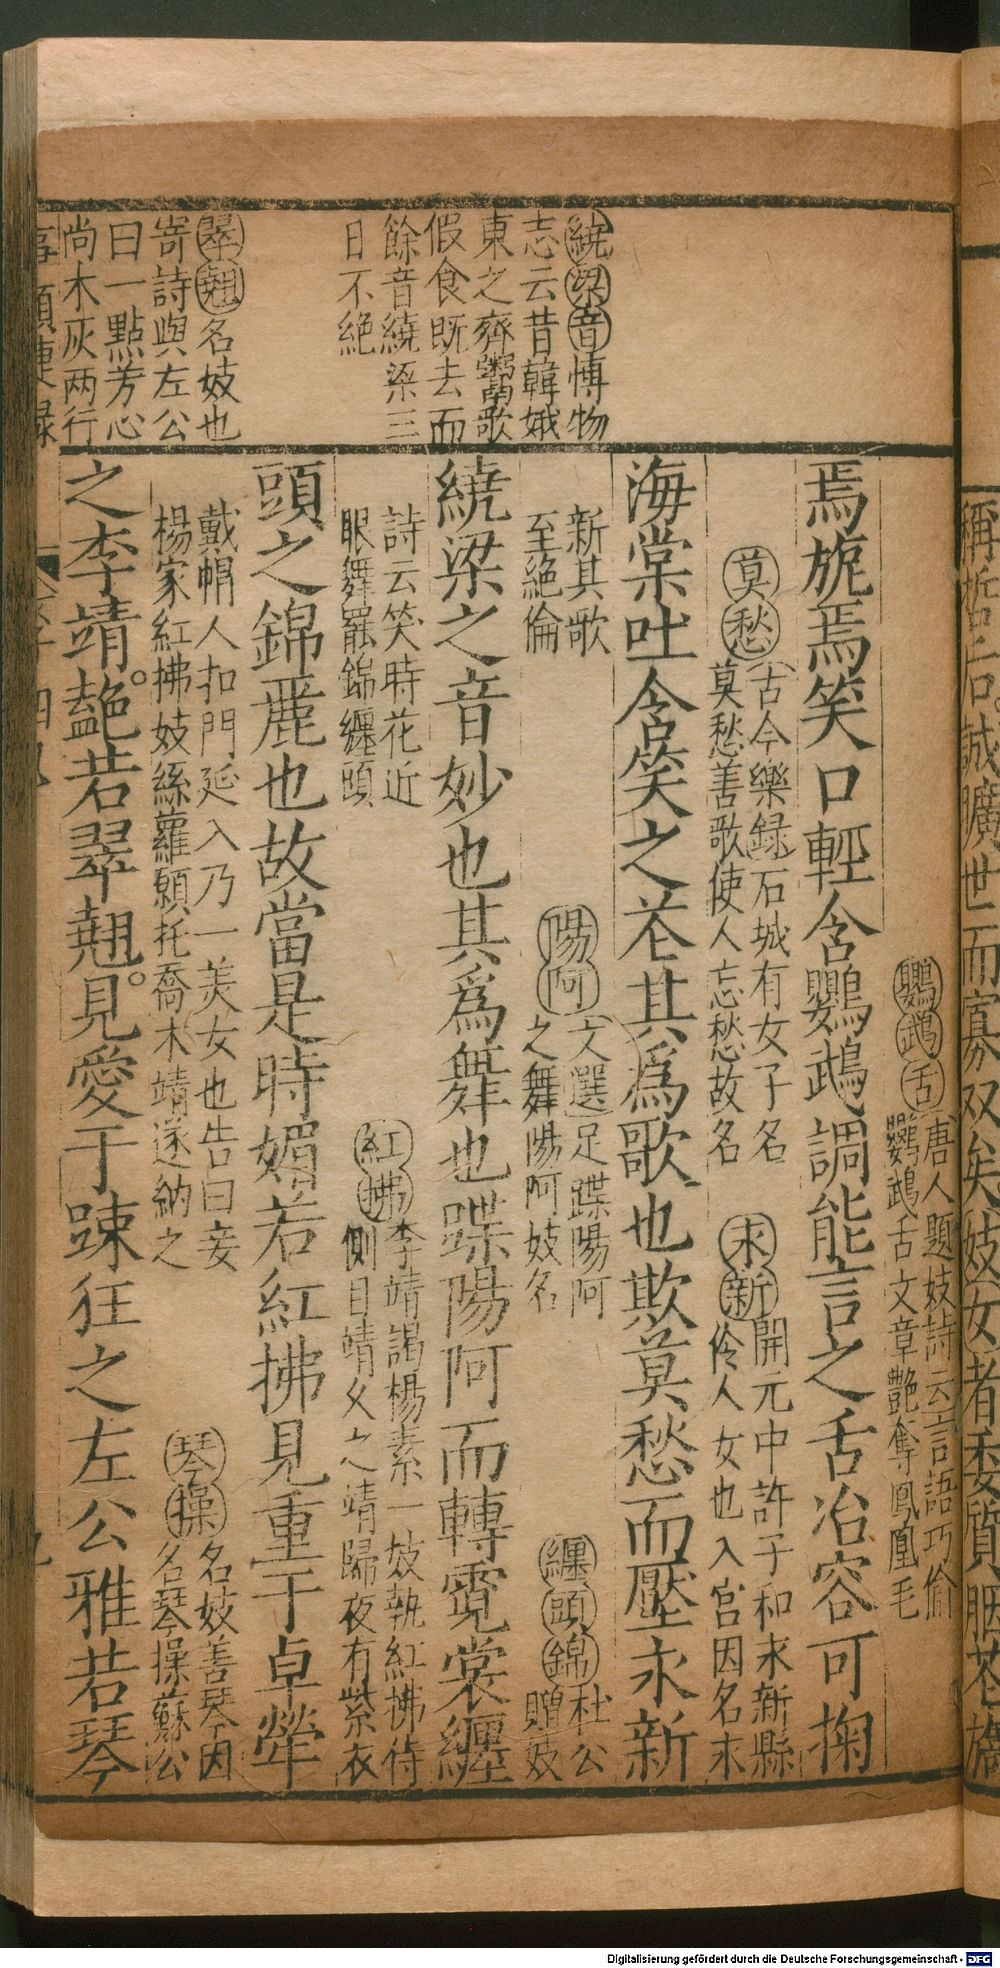 稱哲后誠曠世而寡双矣妓女者委質胭花
繞梁音博物
志云昔韓娥
東之齊鬻歌
假食既去而
餘音繞梁三
日不絶
翠翹名妓也
寄詩與左公
曰一點芳心
尚木灰两行
鸚鵡舌唐人題妓詩云言語巧偷
鸚鵡舌文章艷奪鳳凰毛
焉旎焉笑口輕含鸚鵡調能言之舌冶容可掬
莫愁古今樂録石城有女子名
莫愁善歌使人忘愁故名
永新開元中許子和永新縣
伶人女也入宫因名永
海棠吐含笑之花其為歌也欺莫愁而壓永新
新其歌
至絶倫
陽阿文選足蹀陽阿
之舞陽阿妓名
纏頭錦杜公
贈妓
繞梁之音妙也其爲舞也蹀陽阿而轉霓裳纏
詩云笑時花近
眼舞罷錦纏頭
紅拂李靖謁楊素一妓執紅拂侍
側目靖久之靖歸夜有紫衣
頭之錦麗也故當是時媚若紅拂見重于卓犖
戴帽人扣門延入乃一美女也告曰妾
楊家紅拂妓絲蘿願托喬木靖遂納之
琴操名妓善琴因
名琴操蘇公
之李靖。艷若翠翹。見愛于踈狂之左公雅若琴